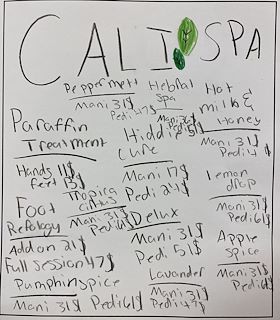 CALI SPA
Peppermett
Mani 31$
Pedi 47$
Hebral
Spa
Mani 36$
Pedi 51$
Hot
milk &
Honey
Mani 31$
Pedi 41$
Paraffin
Treatment
Hands 11$
feet 13$
Hiddie
Cure
Mani 17$
Pedi 24$
Tropica
Citrus
Mani 31$
Pedi 61$
lemon
drop
Mani 31$
Pedi 61$
Foot
Reflology
Add on 21$
Full session 47$
Delux
Mani 31$
Pedi 51$
Apple
Spice
Mani 31$
Pedi 61$
Pumphinspice
Mani 31$ Pedi 61$
Lavander
Mani 31$
Pedi 47$